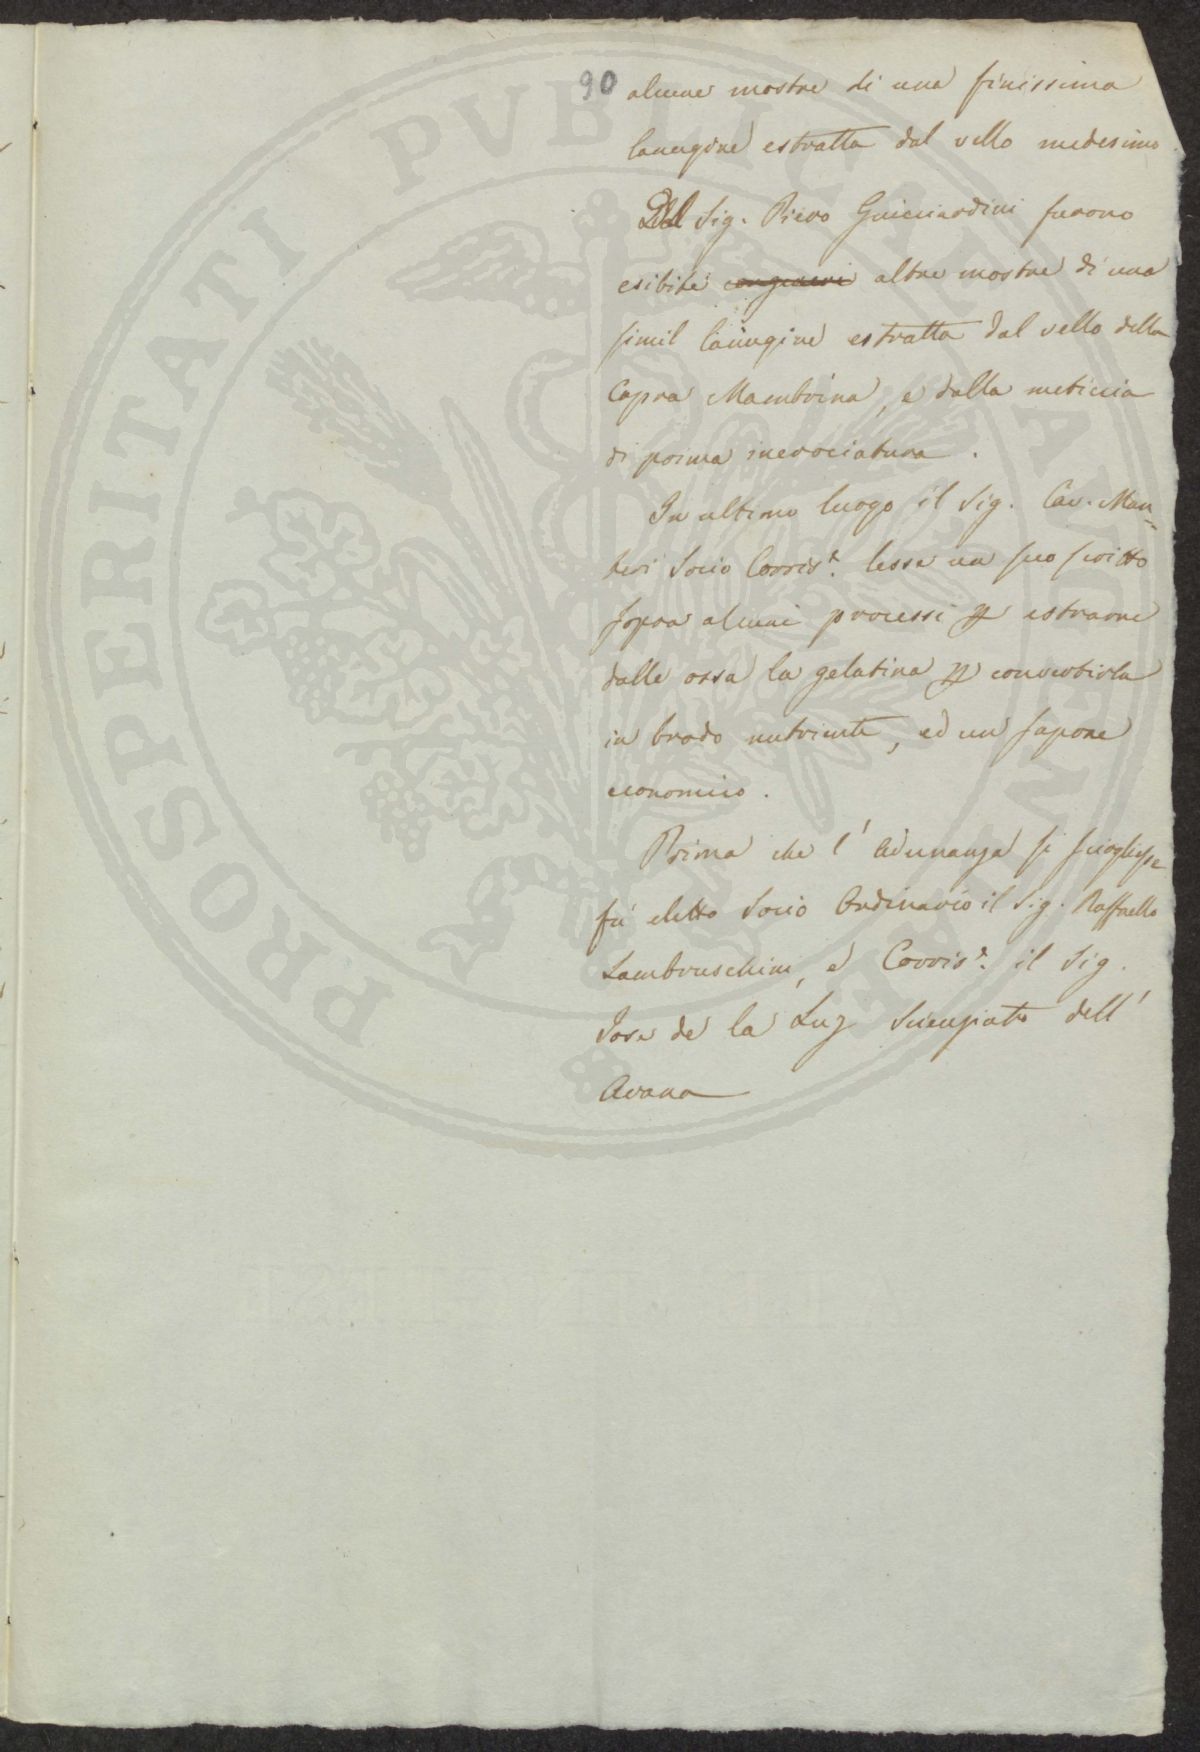 90
alcune mostre di una finissima
lanugine estratta dal vello medesimo.
Dal Sig. Piero Guicciardini furono
esibite congeneri altre mostre di una
simil lanugine estratta dal vello della
Capra Mambrina, e dalla meticcia
di prima incrociatura.
In ultimo luogo il Sig. Cav. Man=
teri Socio Corrisp.e lesse un suo scritto
sopra alcuni processi p estrarre
dalle ossa la gelatina p convertirla
in brodo nutriente, ed un sapone
economico.
Prima che l'Adunanza si sciogliesse
fù eletto Socio Ordinario il Sig. Raffaello
Lambruschini, e Corrisp.e il Sig.
Jose de la Luz Scienziato dell'
Avana
PROSPERITATI PVBLICAE AVGENDAE